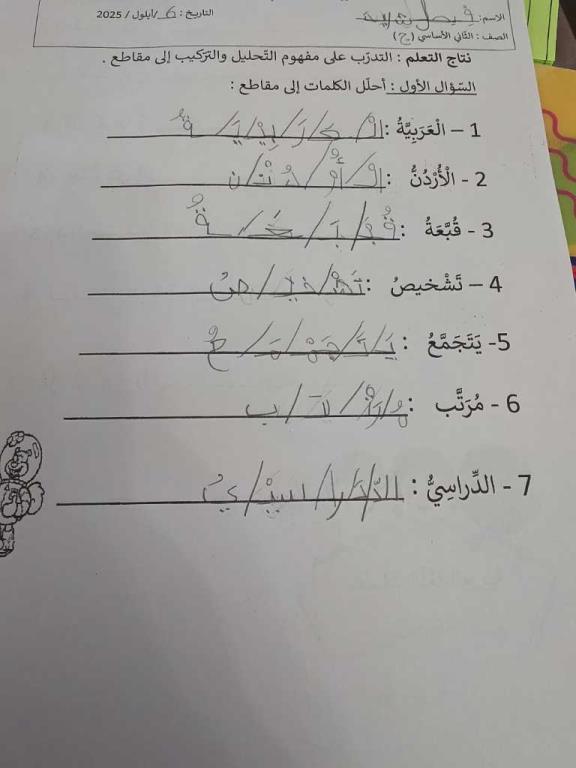 الاسم: فيصل
التاريخ : 6 /أيلول / 2025
الصف : الثّاني الأساسي (ج)
نتاج التعلم : التدرّب على مفهوم التّحليل والتّركيب إلى مقاطع .
السّؤال الأول : أحلّل الكلمات إلى مقاطع :
1 – الْعَرَبِيَّةُ : الْ/عَـ/رَ/بِيْـ/يَـ/ـةُ
2 - الْأُرْدُنُّ : الْ/أُرْ/دُ
3 - قُبَّعَةُ : قُبْـ/بَـ/عَـ/ـةُ
4 – تَشْخيصُ : تَشْـ/خيـ/صُ
5- يَتَجَمَّعُ : يَـ/تَـ/جَمْـ/مَـ/عُ
6 - مُرَتَّب : مُـ/رَتْـ/تَـ/ب
7 - الدِّراسِيُّ :